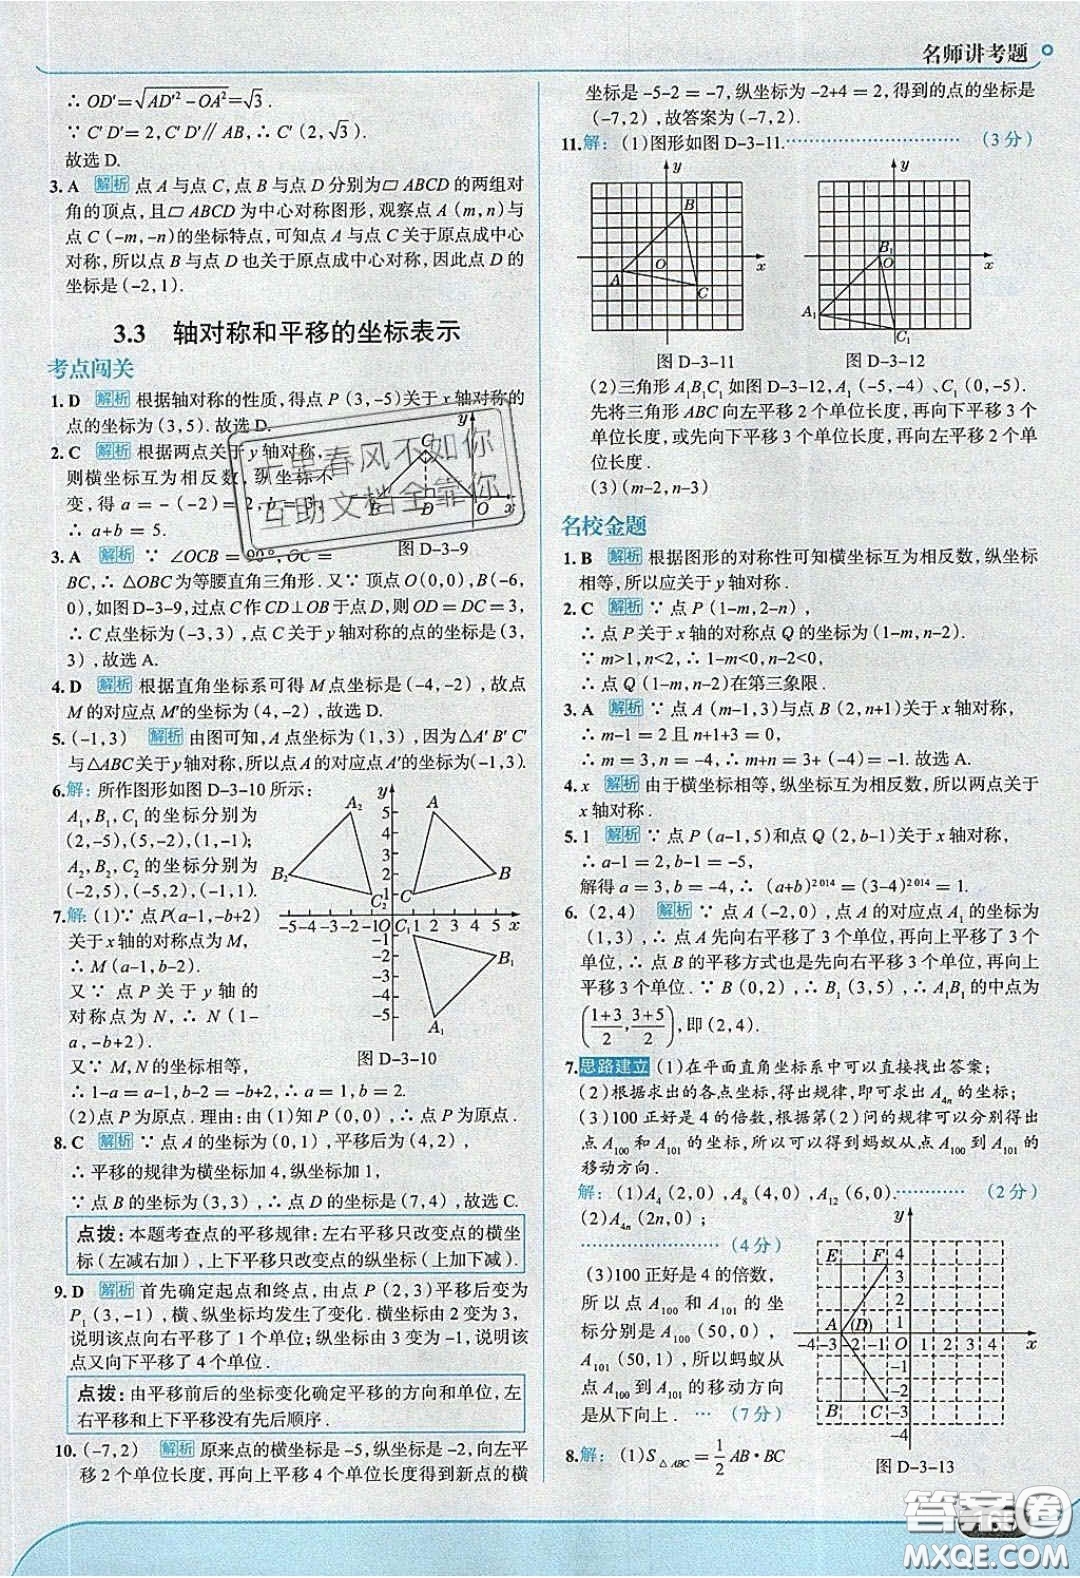 名师讲考题
∴ OD′=√AD′²－OA²=√3.
∵ C′D′=2, C′D′∥AB, ∴ C′(2,√3).
故选 D.
3. A 解析 点 A 与点 C，点 B 与点 D 分别为▱ABCD 的两组对
角的顶点，且▱ABCD 为中心对称图形，观察点 A（m，n）与
点 C（-m，-n）的坐标特点，可知点 A 与点 C 关于原点成中心
对称，所以点 B 与点 D 也关于原点成中心对称，因此点 D 的
坐标是（-2，1）.
3.3 轴对称和平移的坐标表示
考点闯关
1. D 解析 根据轴对称的性质，得点 P（3，-5）关于 x 轴对称的
点的坐标为（3，5）.故选 D.
2. C 解析 根据两点关于 y 轴对称，
则横坐标互为相反数，纵坐标不
变，得 a = -（-2）= 2，b = 3，
∴ a+b = 5.
3. A 解析 ∵ ∠OCB = 90°，OC =
BC，∴ △OBC 为等腰直角三角形. 又∵ 顶点 O（0，0），B（-6，
0），如图 D-3-9，过点 C 作 CD⊥OB 于点 D，则 OD = DC = 3，
∴ C 点坐标为（-3，3），点 C 关于 y 轴对称的点的坐标是（3，
3），故选 A.
C
y
B
D
O
x
图 D-3-9
千里春风不如你
互助文档全靠你
4. D 解析 根据直角坐标系可得 M 点坐标是（-4，-2），故点
M 的对应点 M′的坐标为（4，-2），故选 D.
5.（-1，3） 解析 由图可知，A 点坐标为（1，3），因为△A′B′C′
与△ABC 关于 y 轴对称，所以点 A 的对应点 A′的坐标为（-1，3）.
6.解：所作图形如图 D-3-10 所示：
A₁，B₁，C₁ 的坐标分别为
（2，-5），（5，-2），（1，-1）；
A₂，B₂，C₂ 的坐标分别为
（-2，5），（-5，2），（-1，1）.
7.解：（1）∵ 点P（a-1，-b+2）
关于 x 轴的对称点为 M，
∴ M（a-1，b-2）.
又∵ 点 P 关于 y 轴的
对称点为 N，∴ N（1-
a，-b+2）.
又∵ M，N 的坐标相等，
∴ 1-a = a-1，b-2=-b+2，∴ a = 1，b = 2.
（2）点 P 为原点. 理由：由（1）知 P（0，0），∴ 点 P 为原点.
y
A₂ 5 A
4
3
B₂ 2 B
C₂ 1 C
-5 -4 -3 -2 -1 O C₁ 1 2 3 4 5 x
-1
-2 B₁
-3
-4
-5
A₁
图 D-3-10
8. C 解析 ∵ 点 A 的坐标为（0，1），平移后为（4，2），
∴ 平移的规律为横坐标加 4，纵坐标加 1，
∵ 点 B 的坐标为（3，3），∴ 点 D 的坐标是（7，4），故选 C.
点拨：本题考查点的平移规律：左右平移只改变点的横坐
标（左减右加），上下平移只改变点的纵坐标（上加下减）.
9. D 解析 首先确定起点和终点，由点 P（2，3）平移后变为
P₁（3，-1），横、纵坐标均发生了变化. 横坐标由 2 变为 3，
说明该点向右平移了 1 个单位；纵坐标由 3 变为 -1，说明该
点又向下平移了 4 个单位.
点拨：由平移前后的坐标变化确定平移的方向和单位，左
右平移和上下平移没有先后顺序.
10.（-7，2） 解析 原来点的横坐标是 -5，纵坐标是 -2，向左平
移 2 个单位长度，再向上平移 4 个单位长度得到新点的横
坐标是 -5-2 = -7，纵坐标为 -2+4 = 2，得到的点的坐标是
（-7，2），故答案为（-7，2）.
11.解：（1）图形如图 D-3-11.…………………………（3 分）
y
B
O
A
x
C
图 D-3-11
y
B₁
O
x
A₁
C₁
图 D-3-12
（2）三角形 A₁B₁C₁ 如图 D-3-12，A₁（-5，-4）、C₁（0，-5）.
先将三角形 ABC 向左平移 2 个单位长度，再向下平移 3 个
单位长度，或先向下平移 3 个单位长度，再向左平移 2 个单
位长度.
（3）（m-2，n-3）
名校金题
1. B 解析 根据图形的对称性可知横坐标互为相反数，纵坐标
相等，所以应关于 y 轴对称.
2. C 解析 ∵ 点 P（1-m，2-n），
∴ 点 P 关于 x 轴的对称点 Q 的坐标为（1-m，n-2）.
∵ m>1，n<2，∴ 1-m<0，n-2<0，
∴ 点 Q（1-m，n-2）在第三象限.
3. A 解析 ∵ 点 A（m-1，3）与点 B（2，n+1）关于 x 轴对称，
∴ m-1=2 且 n+1+3 = 0，
∴ m = 3，n = -4，∴ m+n = 3+（-4）= -1. 故选 A.
4. x 解析 由于横坐标相等，纵坐标互为相反数，所以两点关于
x 轴对称.
5. 1 解析 ∵ 点 P（a-1，5）和点 Q（2，b-1）关于 x 轴对称，
∴ a-1 = 2，b-1 = -5，
解得 a = 3，b = -4，∴（a+b）²⁰¹⁴ =（3-4）²⁰¹⁴ = 1.
6.（2，4） 解析 ∵ 点 A（-2，0），点 A 的对应点 A₁ 的坐标为
（1，3），∴ 点 A 先向右平移了 3 个单位，再向上平移了 3 个
单位，∴ 点 B 的平移方式也是先向右平移 3 个单位，再向上
平移 3 个单位. ∵ B（0，2），∴ B₁（3，5），∴ A₁B₁ 的中点为
（(1+3)/2，(3+5)/2），即（2，4）.
7. 思路建立 （1）在平面直角坐标系中可以直接找出答案；
（2）根据求出的各点坐标，得出规律，即可求出 A₄ₙ 的坐标；
（3）100 正好是 4 的倍数，根据第（2）问的规律可以分别得出
点 A₁₀₀ 和 A₁₀₁ 的坐标，所以可以得到蚂蚁从点 A₁₀₀ 到 A₁₀₁ 的
移动方向.
解：（1）A₄（2，0），A₈（4，0），A₁₂（6，0）.…………（2 分）
（2）A₄ₙ（2n，0）；
……………………（4 分）
（3）100 正好是 4 的倍数，
所以点 A₁₀₀ 和 A₁₀₁ 的坐
标分别是 A₁₀₀（50，0），
A₁₀₁（50，1），所以蚂蚁从
点 A₁₀₀ 到 A₁₀₁ 的移动方向
是从下向上. …（7 分）
y
E F 4
3
2
1
A (D) O
-4 -3 -2 -1 1 2 3 4 x
-1
-2
B C -3
-4
图 D-3-13
8.解：（1）S△ABC = 1/2 AB·BC
答案圈
MXQE.COM